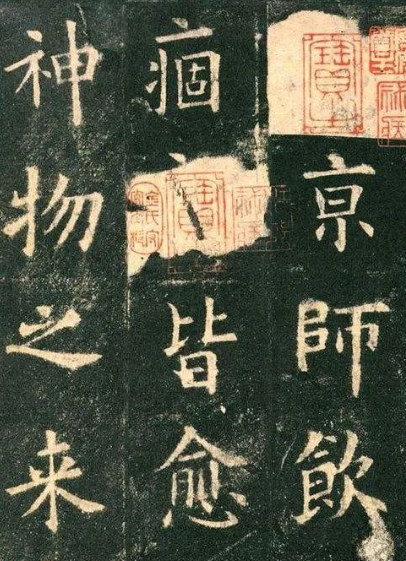 亰師飲
痼皆愈
神物之来